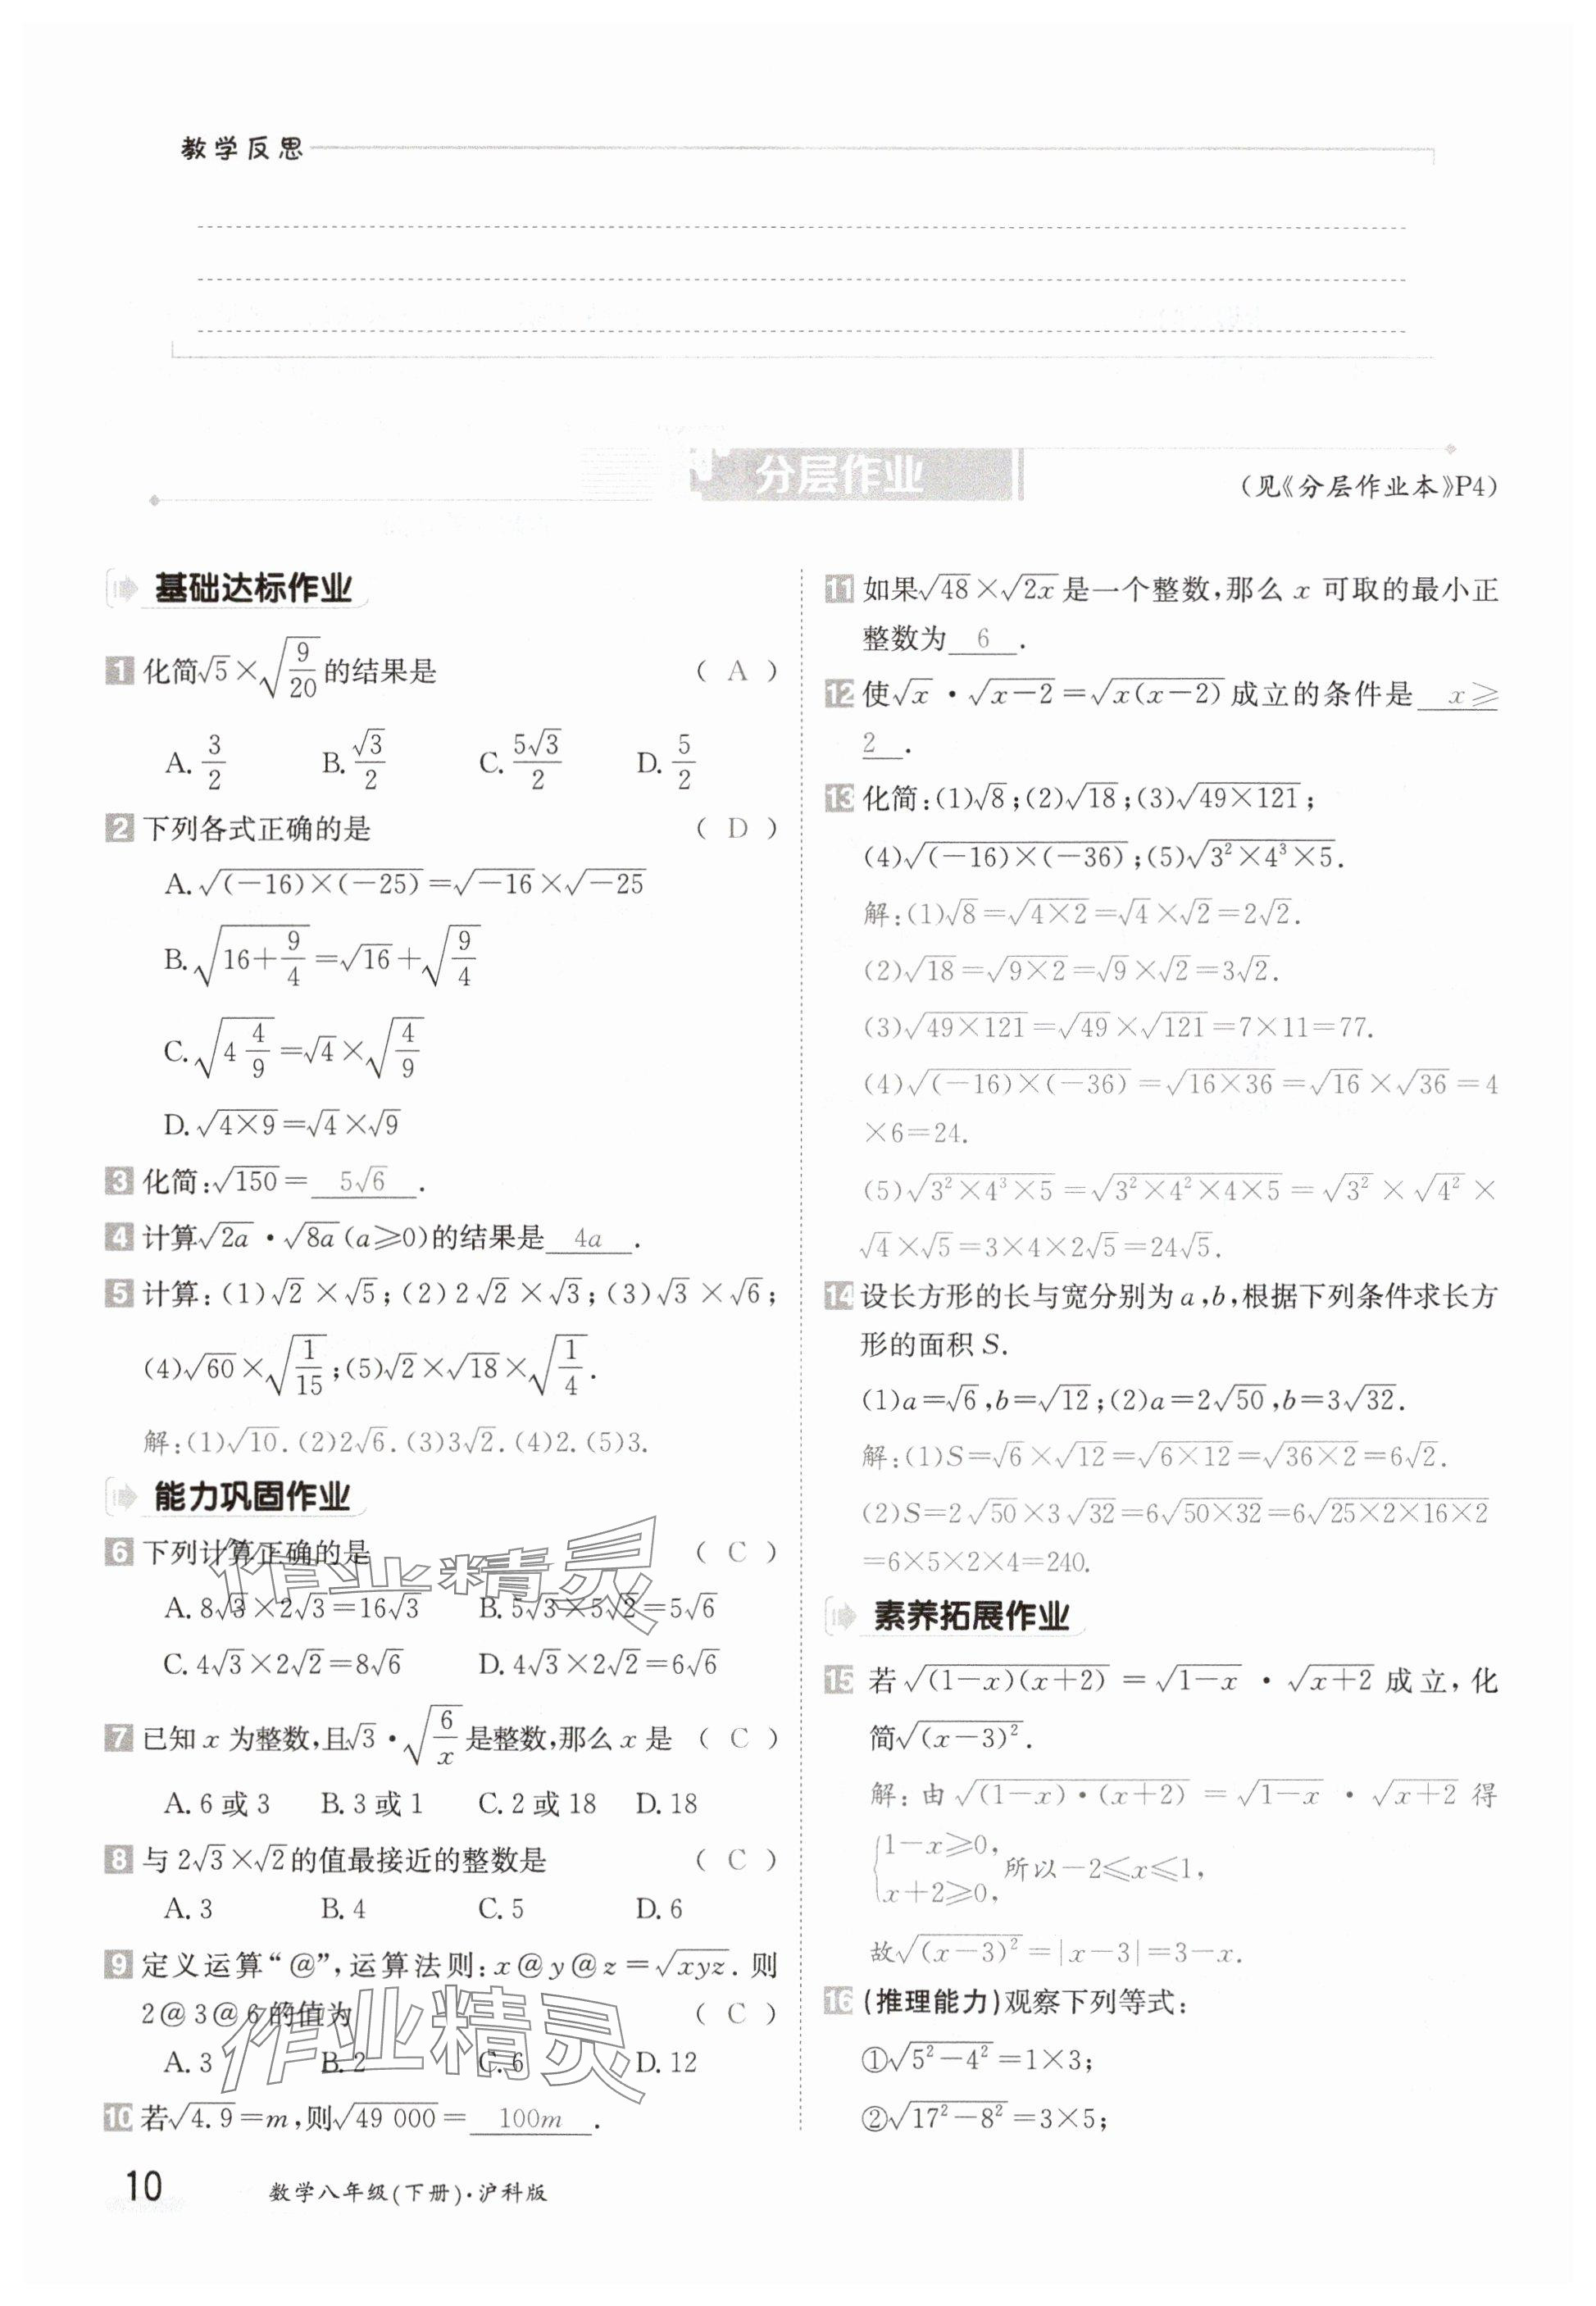 教学反思
分层作业
(见《分层作业本》P4)
基础达标作业
1 化简√5×√(9/20)的结果是 ( A )
A. 3/2 B. √3/2 C. 5√3/2 D. 5/2
2 下列各式正确的是 ( D )
A. √((-16)×(-25))=√(-16)×√(-25)
B. √(16+9/4)=√16+√(9/4)
C. √(4 4/9)=√4×√(4/9)
D. √(4×9)=√4×√9
3 化简:√150= 5√6 .
4 计算√(2a)·√(8a)(a≥0)的结果是 4a .
5 计算:(1)√2×√5;(2)2√2×√3;(3)√3×√6;
(4)√60×√(1/15);(5)√2×√18×√(1/4).
解:(1)√10.(2)2√6.(3)3√2.(4)2.(5)3.
能力巩固作业
6 下列计算正确的是 ( C )
A. 8√3×2√3=16√3 B. 5√3×5√2=5√6
C. 4√3×2√2=8√6 D. 4√3×2√2=6√6
7 已知 x 为整数,且√3·√(6/x)是整数,那么 x 是 ( C )
A. 6 或 3 B. 3 或 1 C. 2 或 18 D. 18
8 与 2√3×√2的值最接近的整数是 ( C )
A. 3 B. 4 C. 5 D. 6
9 定义运算“@”,运算法则:x@y@z=√(xyz). 则
2@3@6的值为 ( C )
A. 3 B. 2 C. 6 D. 12
10 若√4.9=m,则√49 000= 100m .
作业精灵
作业精灵
10 数学八年级(下册)·沪科版
11 如果√48×√(2x)是一个整数,那么 x 可取的最小正
整数为 6 .
12 使√x·√(x-2)=√(x(x-2))成立的条件是 x≥
2 .
13 化简:(1)√8;(2)√18;(3)√(49×121);
(4)√((-16)×(-36));(5)√(3²×4³×5).
解:(1)√8=√(4×2)=√4×√2=2√2.
(2)√18=√(9×2)=√9×√2=3√2.
(3)√(49×121)=√49×√121=7×11=77.
(4)√((-16)×(-36))=√(16×36)=√16×√36=4
×6=24.
(5)√(3²×4³×5)=√(3²×4²×4×5)=√(3²)×√(4²)×
√4×√5=3×4×2√5=24√5.
14 设长方形的长与宽分别为 a,b,根据下列条件求长方
形的面积 S.
(1)a=√6,b=√12;(2)a=2√50,b=3√32.
解:(1)S=√6×√12=√(6×12)=√(36×2)=6√2.
(2)S=2√50×3√32=6√(50×32)=6√(25×2×16×2)
=6×5×2×4=240.
素养拓展作业
15 若√((1-x)(x+2))=√(1-x)·√(x+2)成立,化
简√((x-3)²).
解:由√((1-x)·(x+2))=√(1-x)·√(x+2)得
{1-x≥0,
x+2≥0, 所以-2≤x≤1,
故√((x-3)²)=|x-3|=3-x.
16 (推理能力)观察下列等式:
①√(5²-4²)=1×3;
②√(17²-8²)=3×5;